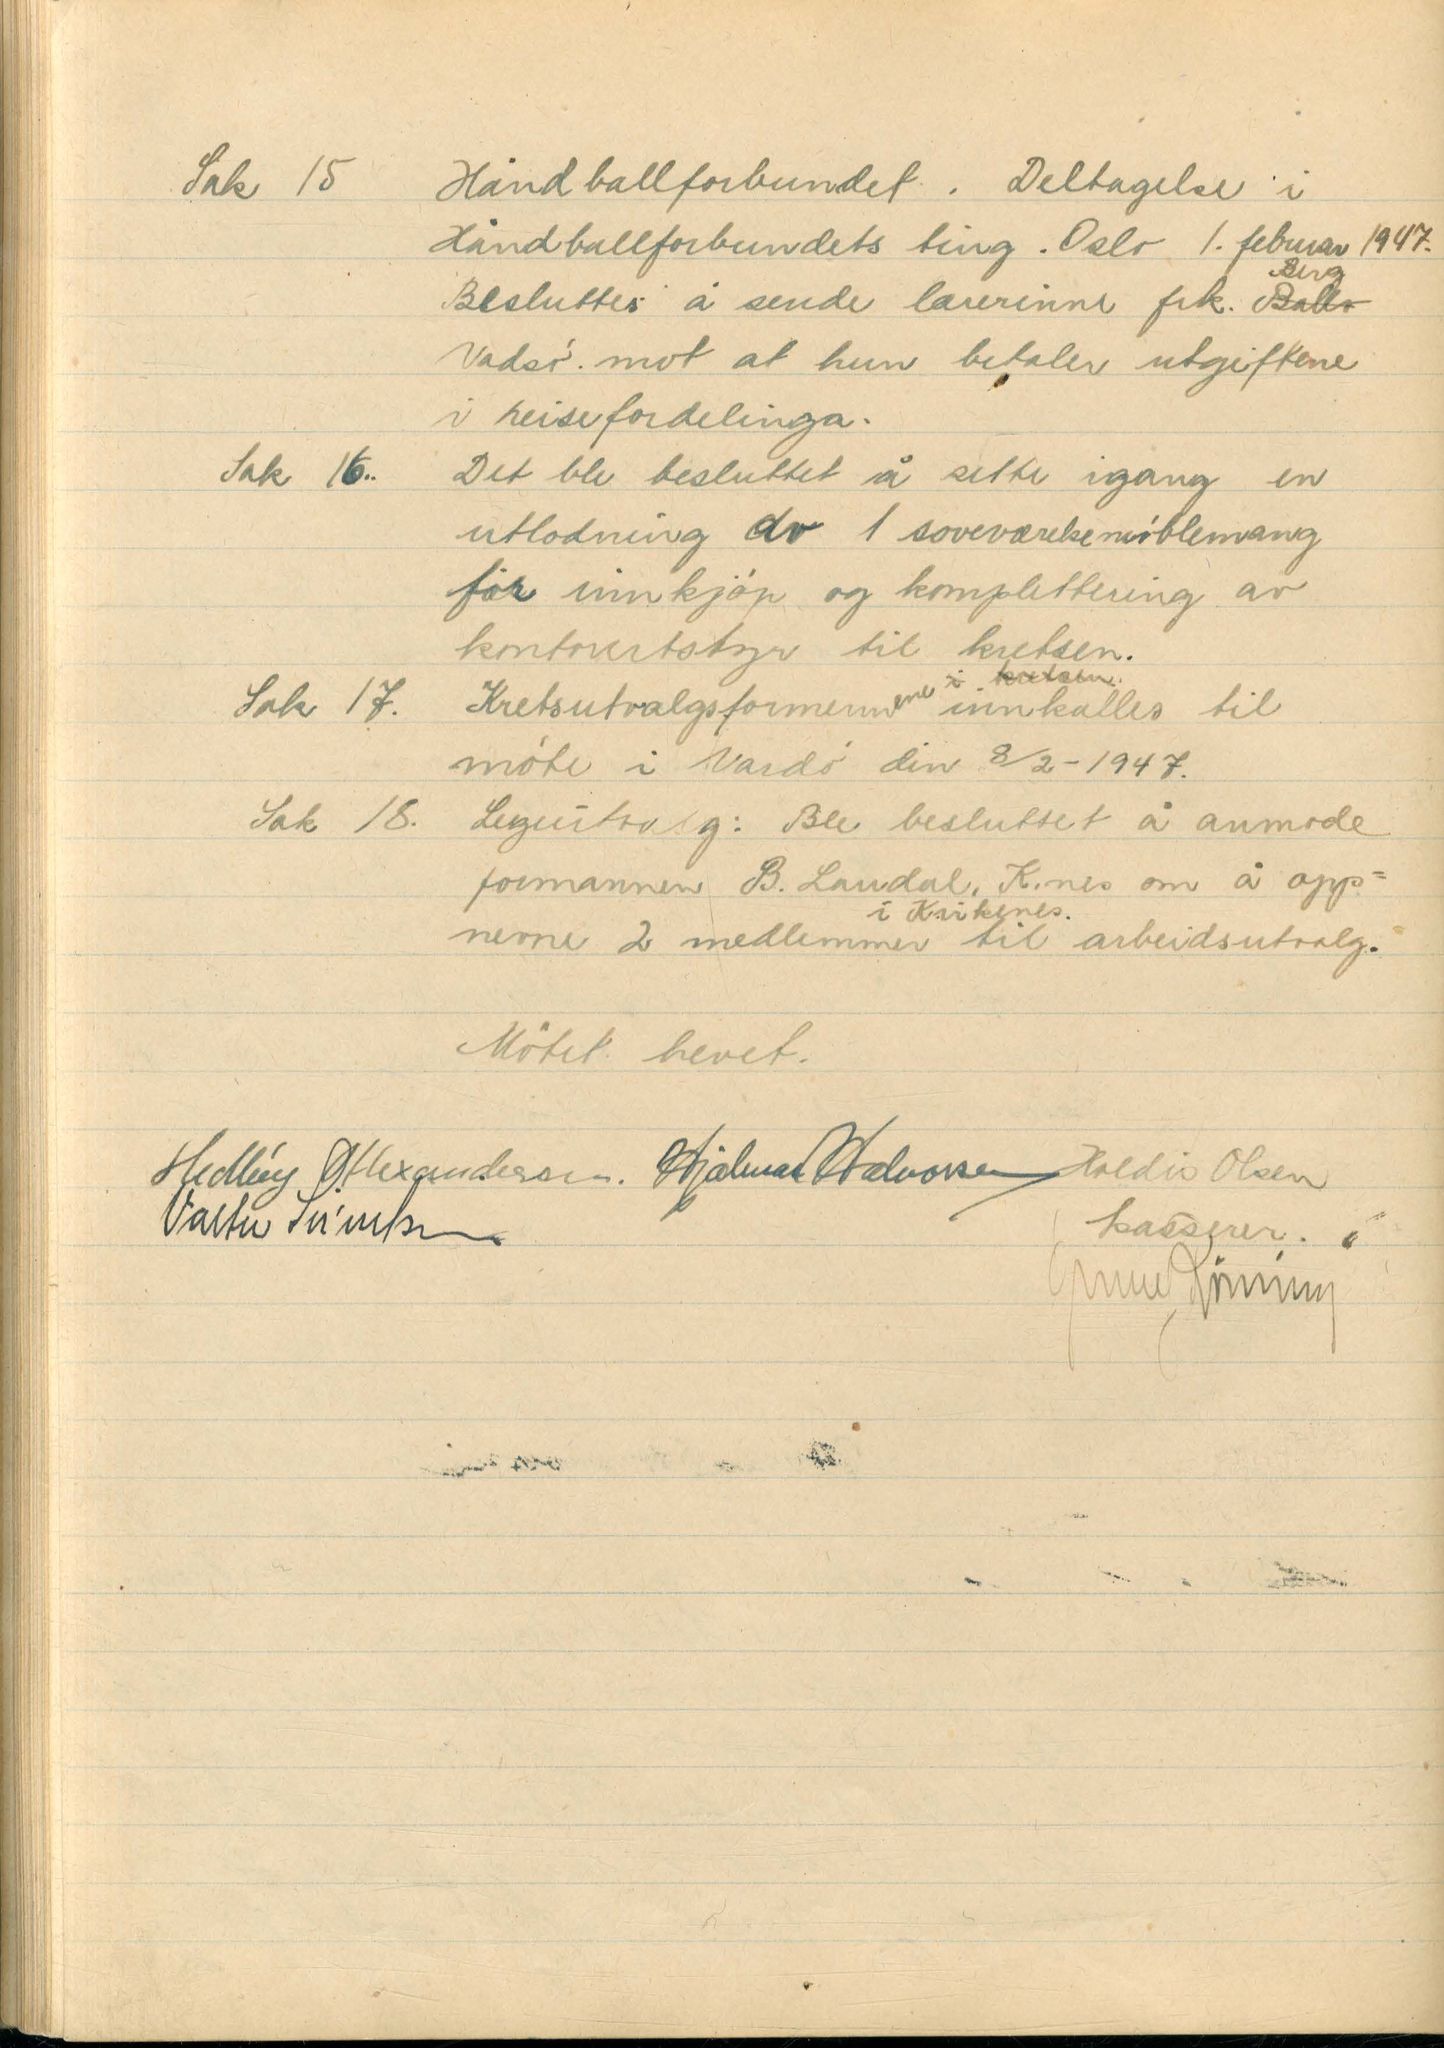 Sak 15 Håndballforbundet. Deltagelse i
Håndballforbundets ting. Oslo 1. februar 1947.
Berg
Besluttes å sende lærerinne frk.
Vadsö. mot at hun betaler utgiftene
i reisefordelinga.
Sak 16.. Det ble besluttet å sette igang en
utlodning av 1 soveværelsemöblemang
för innkjöp og komplettering av
kontorutstyr til kretsen.
i kretsen.
Sak 17. Kretsutvalgsformennene innkalles til
möte i Vardö den 8/2-1947.
Sak 18. Legeutvalg: Ble besluttet å anmode
formannen B. Laudal, K.nes om å opp=
i Kirkenes.
nevne 2 medlemmer til arbeidsutvalg.
Mötet hevet.
Hedley Ø. Alexandersen. Hjalmar Halvorsen Holdis Olsen
Valter
kasserer.